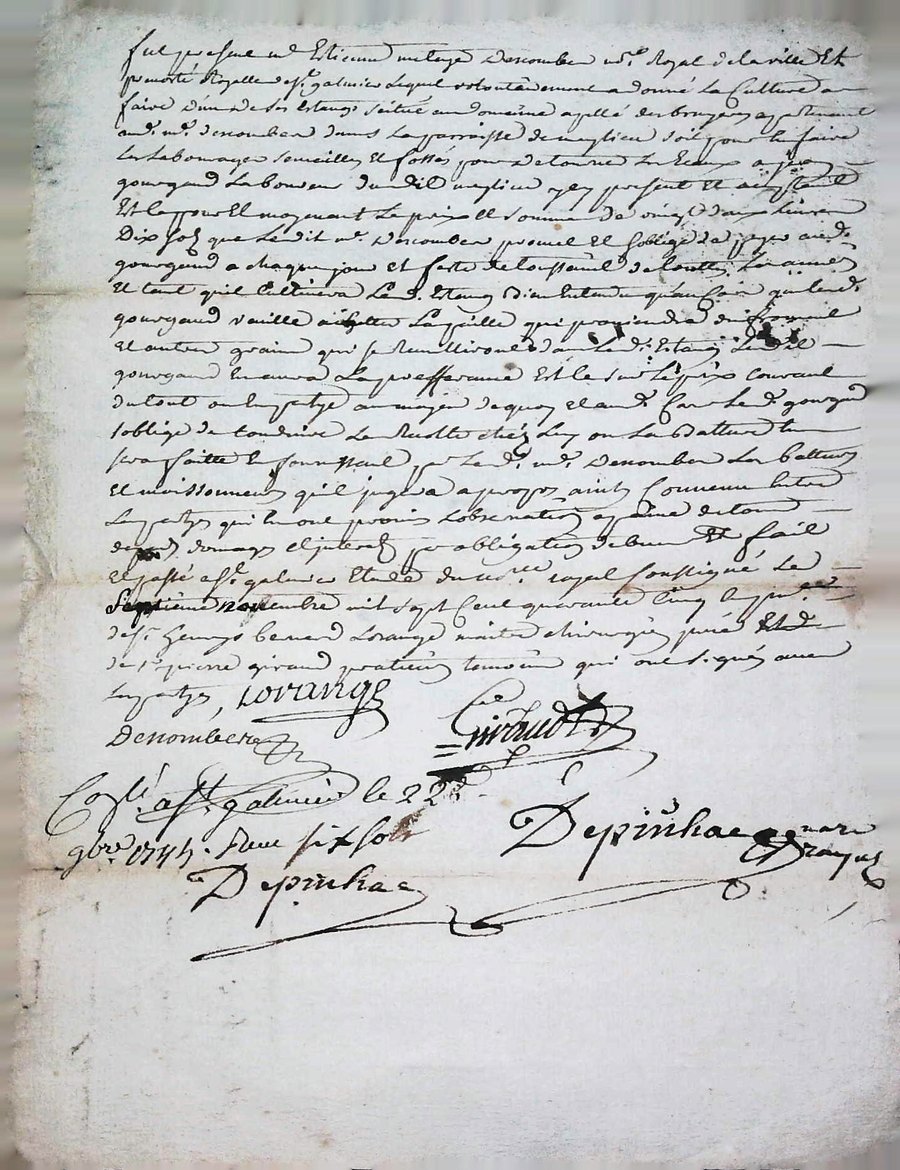 fut presant me Estienne metayer Denombere nore Royal de la ville Et
prevosté Royalle de st galmier Lequel volontairement a donné La Culture a
faire d'un de ses Estangs scitué au domaine apellé des bruyeres apartenant
aud. me denombere dans La parroisse de meylieu soit pour En faire
Les Labourages semailles Et fossés pour detourner Les Eaux a jean
gourgaud Laboureur dudit meylieu ycy present Et acceptant
Et le pour Et moyenant Le prix Et somme de vingt deux Livres
Dix sols que Ledit me Denombere promet Et soblige de payer aud.
gourgaud a chaque jour Et feste de toussaint de touttes Les années
Et tant quil Cultivera Led. Estang Bien Entendu quau Cas que led.
gourgaud veuille achetter La paille qui proviendra du froment
Et autres grains qui se Cueilliront dans Led. Estang Ledit
gourgaud En aura La prefferance Et le sur Le prix Courant
du tout au moyen de quoy Et aud. Cas Le d. gourgaud
soblige de Conduire La Recolte chez Luy ou La Batture En
sera faitte En fournissant par Led. me Denombere Les batteurs
Et moissonneurs quil jugera a propos ainsy Convenu Entre
Les partyes qui En ont promis Lobservation a paine de tous
depens domages Et interets par obligation de biens Et fait
Et passé a st galmier Etude du nore royal soussigné Le
Septieme novembre mil sept Cent quarante Cinq En pnce
de sr bernard Lorange maitre chirurgien juré Et de
de sr pierre giraud praticien temoins qui ont signés avec
Les partyes, Lorange
Denombere
Giraud
Conlé a st galmier le 22e
9bre 1745. Receu six sols
Depinhac
Depinhac